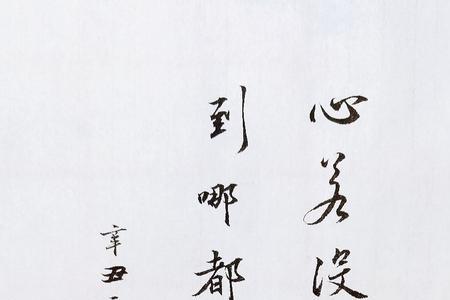 心若没
到哪都
辛丑